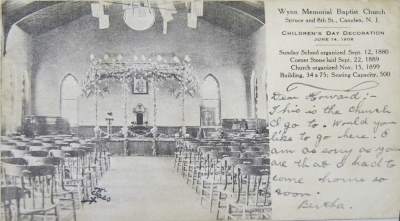 Wynn Memorial Baptist Church
Spruce and 8th St., Camden, N. J.
CHILDREN'S DAY DECORATION
JUNE 14, 1908
Sunday School organized Sept. 12, 1880
Corner Stone laid Sept. 22, 1889
Church organized Nov. 15, 1899
Building, 34 x 75; Seating Capacity, 500
Dear Howard:-
This is the church
I go to. Would you
like to go here. I
am as sorry as you
are that I had to
come home so
soon.
Bertha.